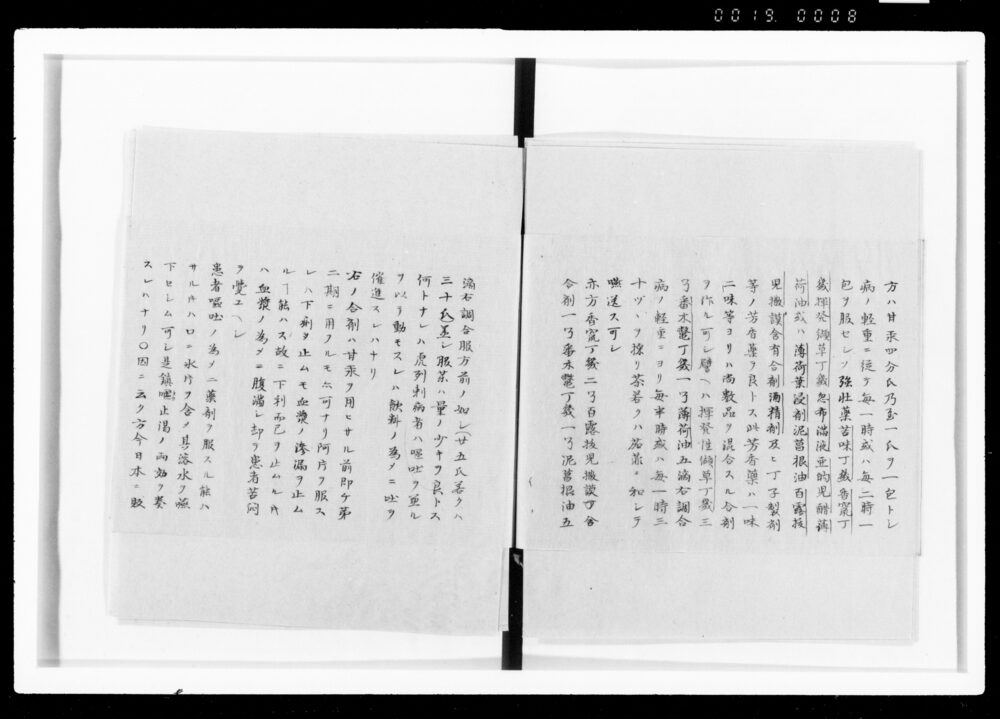 0019.0008
方ハ甘汞四分氏乃至一氏ヲ一包トシ
病ノ軽重ニ従テ毎一時或ハ毎二時一
包ヲ服セシノ強壮薬苦味丁幾香竄丁
幾揮発纈草丁幾忽布満液亜的児醋鎮
荷油或ハ薄荷葉浸剤泥菖根油百露抜
児撒謨含有合剤酒精剤及ヒ丁子製剤
等ノ芳香薬ヲ良トス此芳香薬ハ一味
二味等ヨリハ尚数品ヲ混合スル合剤
ヲ作ル可シ譬ヘハ揮発性纈草丁幾三
弓番木鼈丁幾一弓薄荷油五滴右調合
病ノ軽重ニヨリ毎半時或ハ毎一時三
十ツヽヲ糖リ茶若クハ茄菲ニ和シテ
嚥送ス可シ
亦方香竄丁幾二弓百露抜児撒謨丁含
合剤一弓番木鼈丁幾一弓泥菖根油五
滴右調合服方前ノ如シ廿五氏若クハ
三十氏盖シ服茶ハ量ノ少キヲ良トス
何トナレハ虎列剌病者ハ嘔吐ヲ亜ル
ヲ以テ動モスレハ飲料ノ為メニ吐ヲ
催進スレハナリ
右ノ合剤ハ甘汞ヲ用ヒサル前即チ第
二期ニ用フルモ亦可ナリ阿片ヲ服ス
レハ下痢ヲ止ムモ血漿ノ滲漏ヲ止ム
ルヿ能ハス故ニ下利而已ヲ止ムル片
ハ血漿ノ為メニ腹満シ却テ患者苦悶
ヲ覚エヘシ
患者嘔吐ノ為メニ薬剤ヲ服スル能ハ
サル片ハ口ニ氷片ヲ含メ其溶水ヲ嚥
下セシム可シ是鎮嘔止渇ノ両効ヲ奏
スレハナリ〇因ニ云ク方今日本ニ販